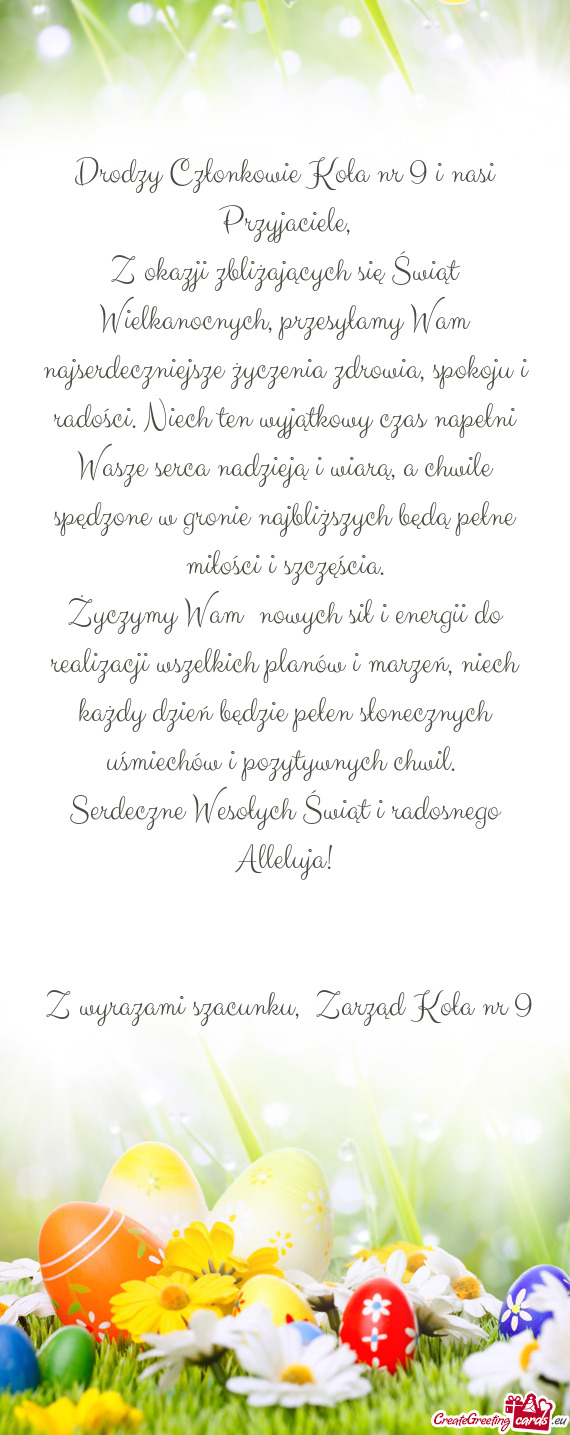 Drodzy Członkowie Koła nr 9 i nasi
Przyjaciele,
Z okazji zbliżających się Świąt
Wielkanocnych, przesyłamy Wam
najserdeczniejsze życzenia zdrowia, spokoju i
radości. Niech ten wyjątkowy czas napełni
Wasze serca nadzieją i wiarą, a chwile
spędzone w gronie najbliższych będą pełne
miłości i szczęścia.
Życzymy Wam  nowych sił i energii do
realizacji wszelkich planów i marzeń, niech
każdy dzień będzie pełen słonecznych
uśmiechów i pozytywnych chwil.
Serdeczne Wesołych Świąt i radosnego
Alleluja!
Z wyrazami szacunku,  Zarząd Koła nr 9
CreateGreetingcards.eu